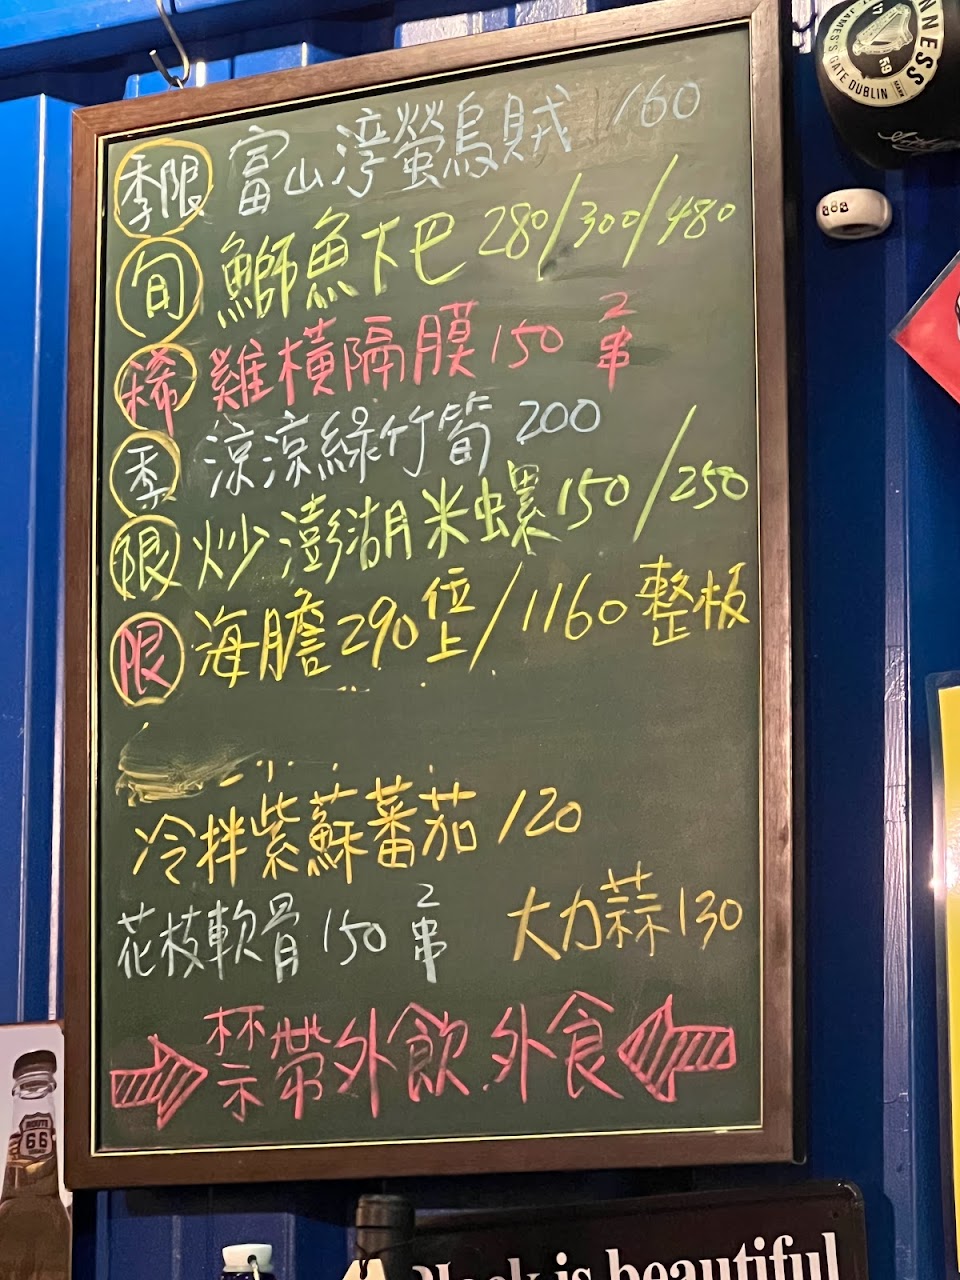 季限 富山湾螢烏賊 160
旬 鰤魚下巴 280/300/480
稀 雞橫隔膜 150 2串
季 涼涼綠竹筍 200
限 炒澎湖米螺 150/250
限 海膽 290位上/1160整板
冷拌紫蘇蕃茄 120
花枝軟骨 150 2串 大力蒜 130
禁帶外飲.外食
GUINNESS
ST JAMES'S GATE DUBLIN
ROUTE
66
Black is beautiful